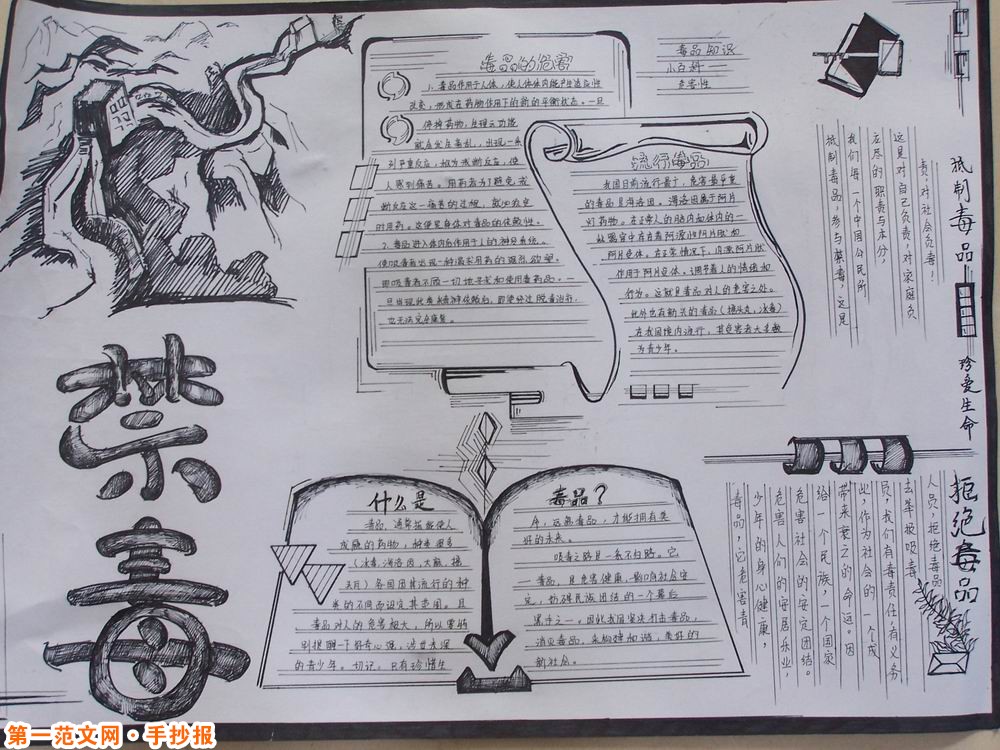 禁毒
毒品的危害
1、毒品作用于人体,使人体体内能产生适应性
改变,形成在药物作用下的新的平衡状态。一旦
停掉药物,生理功能
就会发生紊乱,出现一系
列严重反应,称为戒断反应,使
人感到痛苦。用药者为了避免戒
断反应
的用药。这便是身体对毒品的依赖性。
2、毒品进入体内后作用于人的神经系统,
使吸毒者出现一种渴求用药的强烈欲望。
即吸毒者不顾一切地寻求和使用毒药品。一
旦出现此类精神依赖后,即使经过脱毒治疗,
也无法完全康复。
毒品知识
小百科
危害性
流行毒品
我国目前流行最广,危害最严重
的毒品是海洛因。海洛因属于阿片
列药物。在正常人的脑内和体内的一
些器官中存在着内源性阿片肽和
阿片受体。在正常情况下,内源阿片肽
作用于阿片受体,调节着人的情绪和
行为。这就是毒品对人的危害之处。
此外也有新兴的毒品(摇头丸,冰毒)
在我国境内流行,其危害者大多数
为青少年。
什么是
毒品?
毒品,通常指能使人
成瘾的药物,种类很多
(冰毒,海洛因,大麻,摇
头丸)各国因其流行的种
类的不同而设定其范围。且
毒品对人的危害极大,所以要特
别提醒一下好奇心强,涉世未深
的青少年。切记,只有珍惜生
命,远离毒品,才能拥有美
好的未来。
吸毒之路是一条不归路。它
毒品,且危害健康,影响社会安
定,妨碍民族团结的一个幕后
黑手之一。因此我国坚决打击毒品,
消灭毒品。来构建和谐,美好的
新社会。
抵制毒品
珍爱生命
拒绝毒品
责,对社会负责!
这是对自己负责,对家庭负
应尽的职责与本分,
我们每一个中国公民所
抵制毒品,参与禁毒,这是
人员,拒绝毒品
去举报吸毒
员,我们有责任,有义务
出。作为社会的一个成
带来衰亡的命运。因
给一个民族,一个国家
危害社会的安定团结。
危害人们的安居乐业,
少年的身心健康,
毒品,它危害青
第一范文网·手抄报